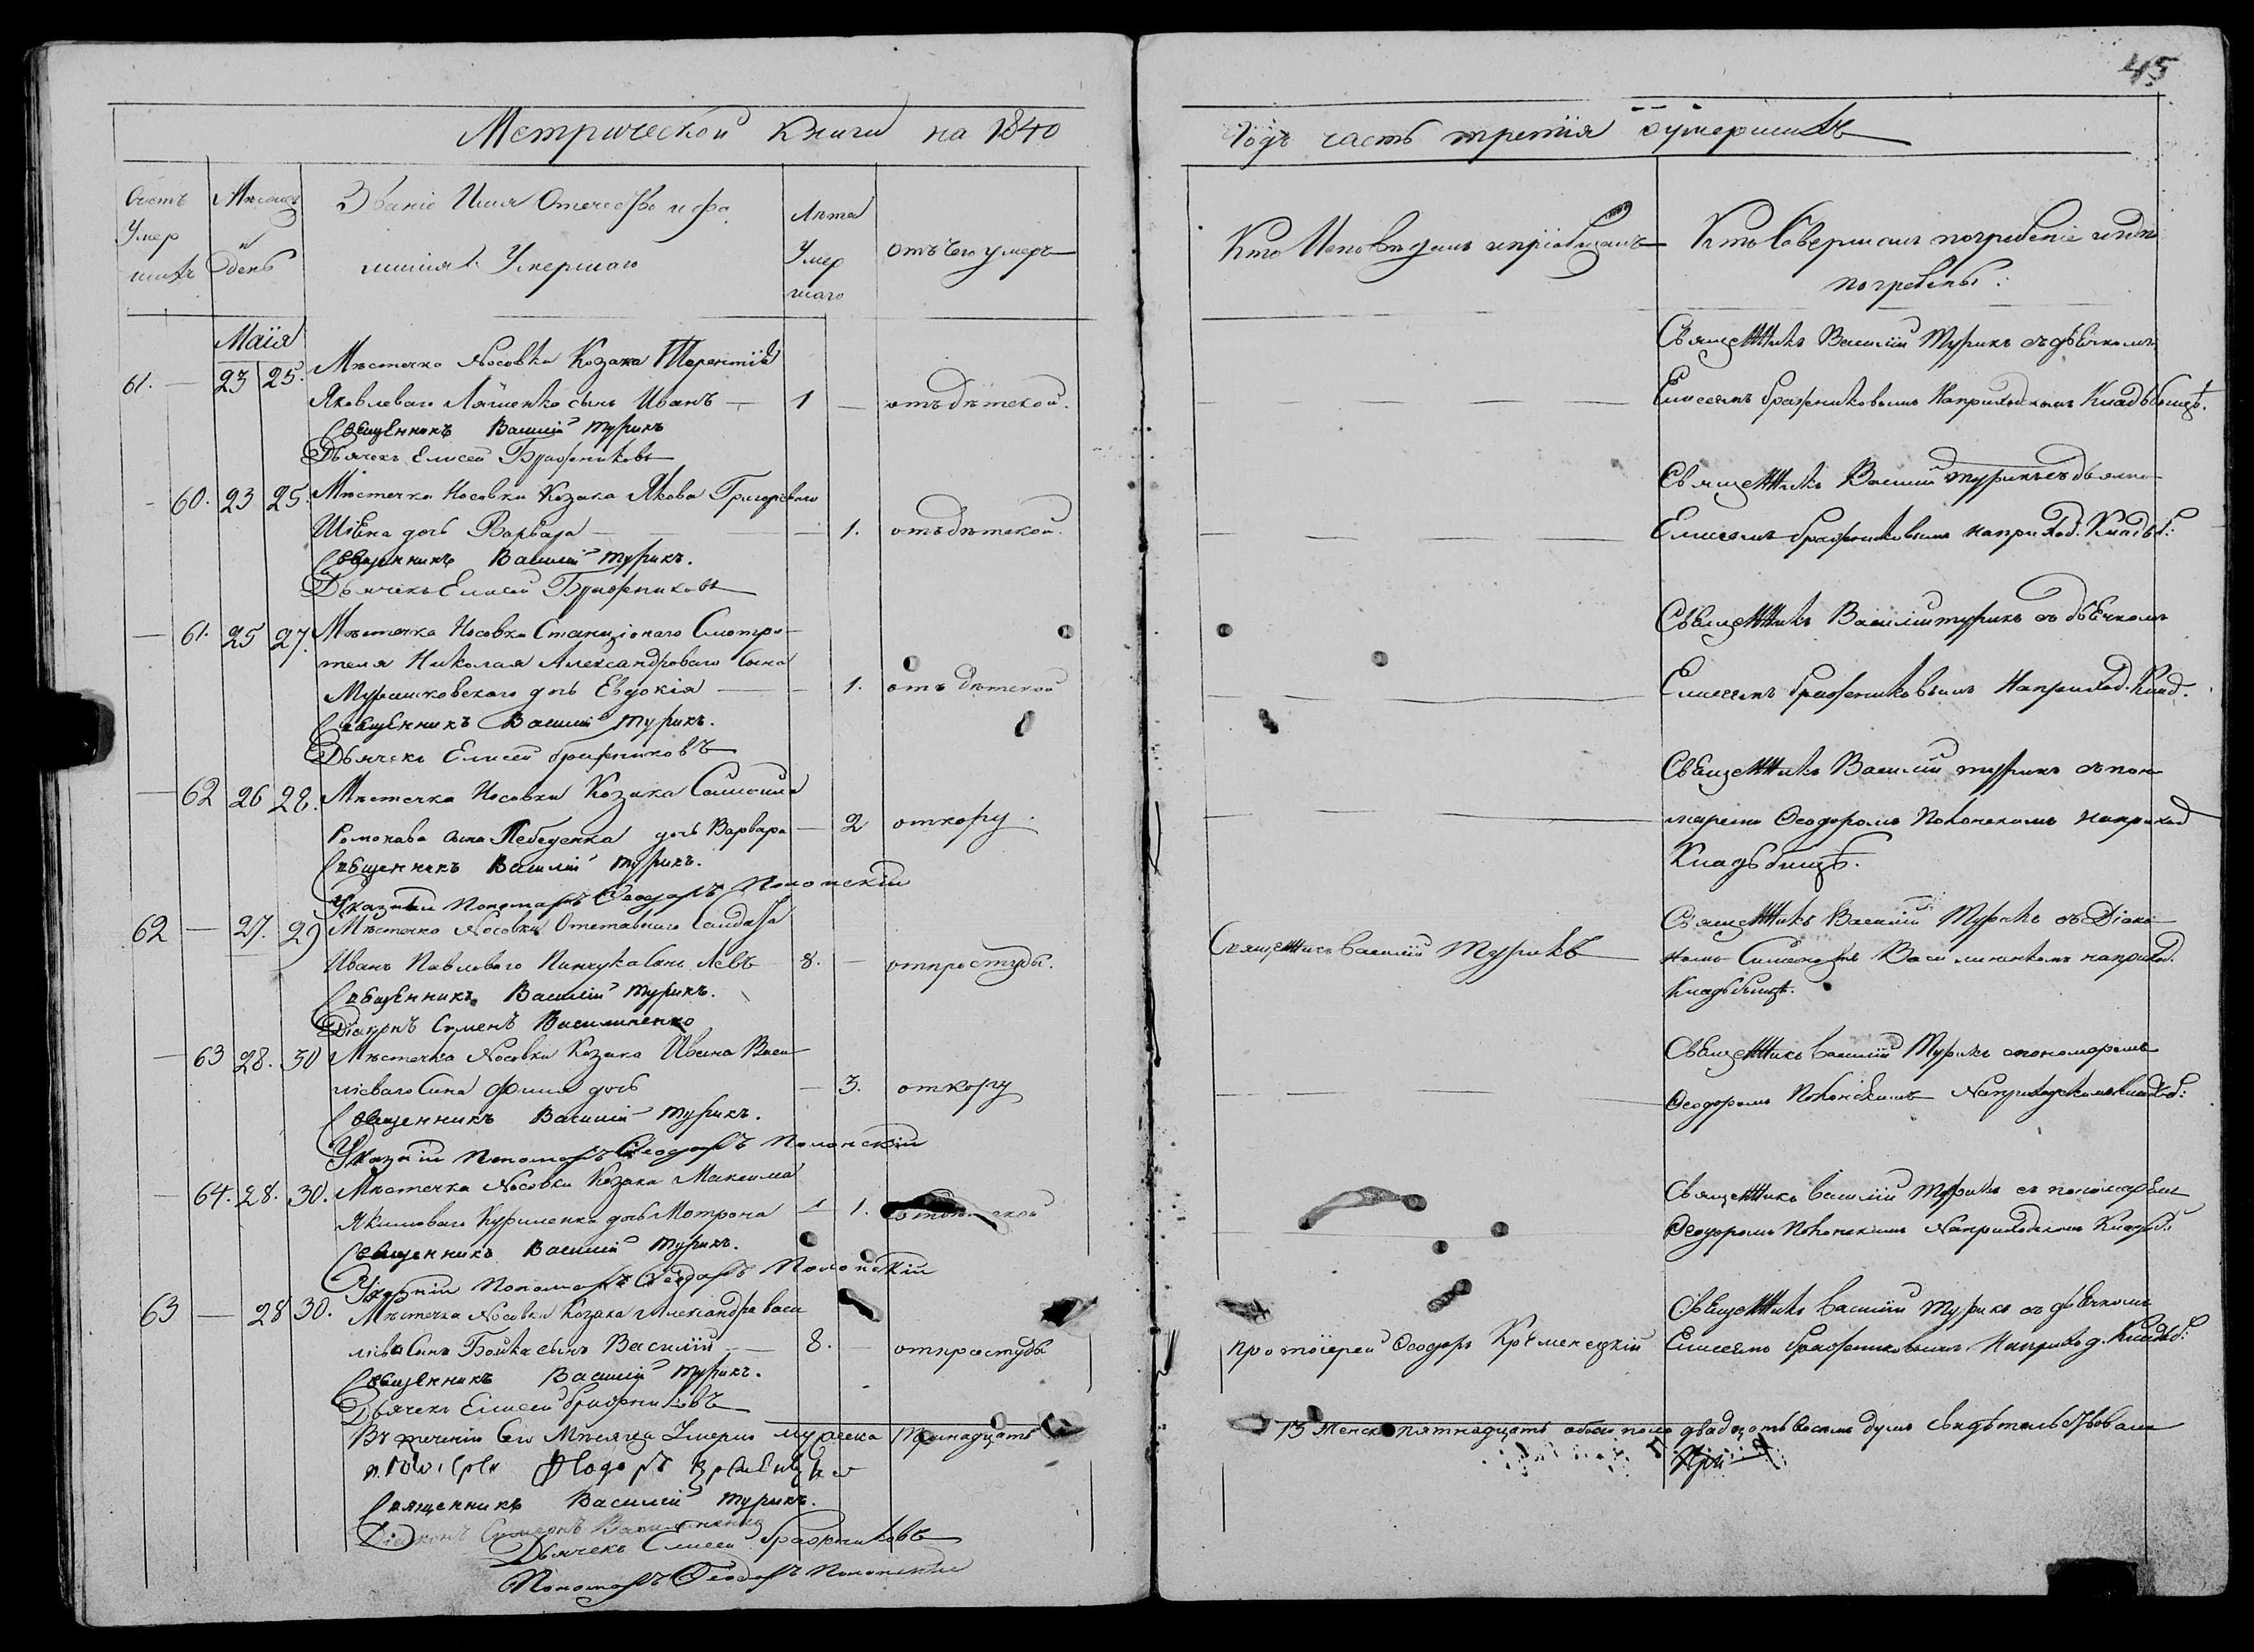 45
Метрической Книги на 1840
Годъ часть третія о умершихъ
Счетъ Умершихъ
Месяцъ и день
Званіе Имя Отечество и фамилія Умершаго
Лѣта Умершаго
отъ чего умеръ
Кто Исповѣдалъ и пріобщалъ
Кто Совершалъ погребеніе и гдѣ погребены:
Маія
61. — 23 25. Мѣстечка Носовки Козака Терентія
Яковлеваго Ляшенко сынъ Иванъ — 1 — отъ дѣтской.
Священникъ Василій Турикъ
Дьячекъ Елисей Бражниковъ
Священникъ Василій Турикъ съ дьячкомъ
Елисеемъ Бражниковымъ На приходскомъ Кладбыщѣ.
— 60. 23 25. Мѣстечка Носовки Козака Якова Григорьеваго
дочь Варвара — 1. отъ дѣтской.
Священникъ Василій Турикъ.
Дьячекъ Елисей Бражниковъ
Священникъ Василій Турикъ съ дьячко
Елисеемъ Бражниковымъ на приход. Кладб:
— 61. 25 27. Мѣстечка Носовки Станціонаго Смотри-
теля Николая Александроваго сына
Мурашковского дочь Евдокія — 1. отъ дѣтской
Священникъ Василій Турикъ.
Дьячекъ Елисей Бражниковъ
Священникъ Василій Турикъ съ дьячкомъ
Елисеемъ Бражниковымъ На приход. Клад.
— 62 26 28. Мѣстечка Носовки Козака
Романова сына Лебеденка дочь Варвара — 2 от кору.
Священникъ Василій Турикъ.
Указный Пономаръ Феодоръ Полонскій
Священникъ Василій Турикъ съ поно
маремъ Феодоромъ Полонскимъ на приход
Кладбищѣ.
62 — 27. 29 Мѣстечка Носовки Отставнаго Солдата
Иванъ Павловаго Пинчука сынъ Левъ 8. — от простуды.
Священникъ Василій Турикъ.
Діаконъ Сименъ Василиненко
Священникъ Василій Турикъ
Священникъ Василій Турикъ съ Діако
номъ Василиненкомъ на приход.
Кладбыщѣ.
— 63 28. 30 Мѣстечка Носовки Козака Ивана Васи
ліеваго Сина дочь — 3. от кору
Священникъ Василій Турикъ.
Указній Пономаръ Феодоръ Полонскій
Священникъ Василій Турикъ с пономаремъ
Феодоромъ Полонскимъ На приходскомъ Кладб:
— 64. 28. 30. Мѣстечка Носовки Козака Максима
Якимоваго Куриленка дочь Мотрона — 1.
Священникъ Василій Турикъ.
Указній Пономаръ Феодоръ Полонскій
Священникъ Василій Турикъ съ пономаремъ
Феодоромъ Полонскимъ На приходскомъ Кладб:
63 — 28 30. Мѣстечка Носовки Козака Александра Васи
ліева Сина Бойка сынъ Василій — 8. — от простуды
Священникъ Василій Турикъ.
Дьячекъ Елисей Бражниковъ
протоіерей Феодоръ Кременецкій
Священникъ Василій Турикъ съ дьячкомъ
Елисеемъ Бражниковымъ На приход. Кладб:
Въ теченіи Сего Мѣсяца Умерло мужеска Тринадцать
13 Женск пятнадцать обоего пола двадцать восемь душъ Свидѣтельствовали
Священникъ Василій Турикъ.
Діяконъ Симеонъ Василиненко
Дьячекъ Елисей Бражниковъ
Пономаръ Феодоръ Полонскій